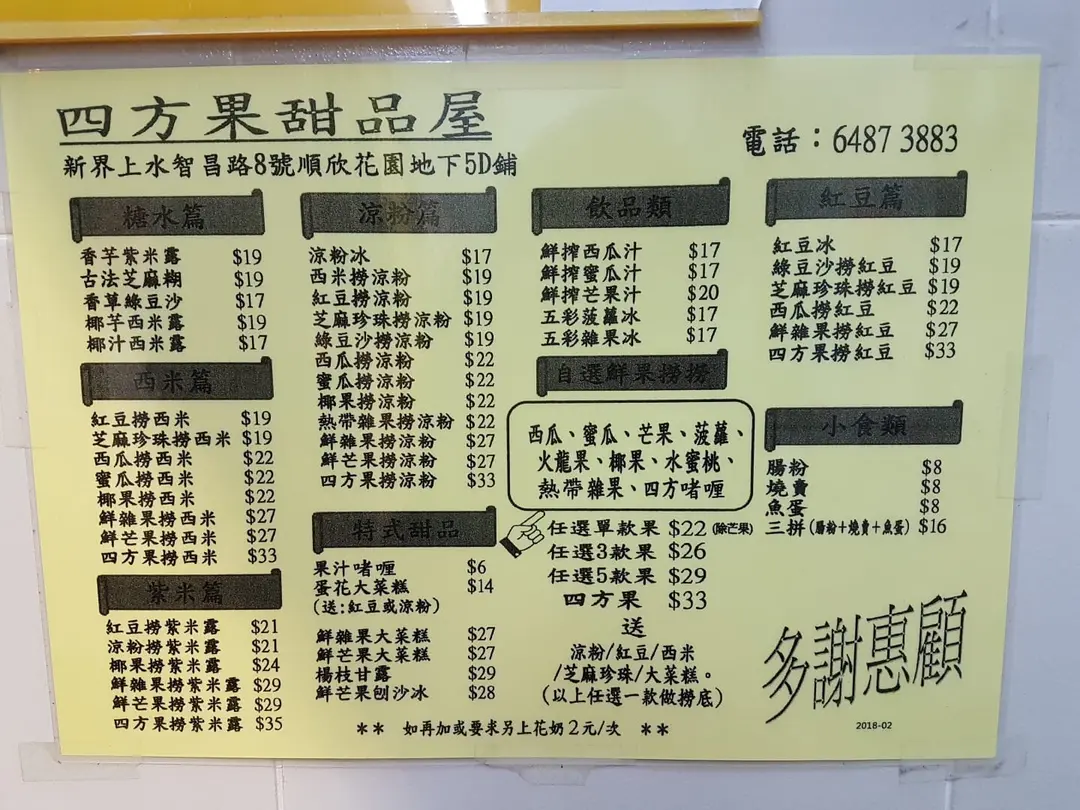 四方果甜品屋
新界上水智昌路8號順欣花園地下5D鋪
電話：6487 3883
糖水篇
香芋紫米露 $19
古法芝麻糊 $19
香草綠豆沙 $17
椰芋西米露 $19
椰汁西米露 $17
西米篇
紅豆撈西米 $19
芝麻珍珠撈西米 $19
西瓜撈西米 $22
蜜瓜撈西米 $22
椰果撈西米 $22
鮮雜果撈西米 $27
鮮芒果撈西米 $27
四方果撈西米 $33
紫米篇
紅豆撈紫米露 $21
涼粉撈紫米露 $21
椰果撈紫米露 $24
鮮雜果撈紫米露 $29
鮮芒果撈紫米露 $29
四方果撈紫米露 $35
涼粉篇
涼粉冰 $17
西米撈涼粉 $19
紅豆撈涼粉 $19
芝麻珍珠撈涼粉 $19
綠豆沙撈涼粉 $19
西瓜撈涼粉 $22
蜜瓜撈涼粉 $22
椰果撈涼粉 $22
熱帶雜果撈涼粉 $22
鮮雜果撈涼粉 $27
鮮芒果撈涼粉 $27
四方果撈涼粉 $33
特式甜品
果汁啫喱 $6
蛋花大菜糕 $14
(送:紅豆或涼粉)
鮮雜果大菜糕 $27
鮮芒果大菜糕 $27
楊枝甘露 $29
鮮芒果刨沙冰 $28
飲品類
鮮搾西瓜汁 $17
鮮搾蜜瓜汁 $17
鮮搾芒果汁 $20
五彩菠蘿冰 $17
五彩雜果冰 $17
自選鮮果撈撈
西瓜、蜜瓜、芒果、菠蘿、
火龍果、椰果、水蜜桃、
熱帶雜果、四方啫喱
任選單款果 $22 (除芒果)
任選3款果 $26
任選5款果 $29
四方果 $33
送
涼粉/紅豆/西米
/芝麻珍珠/大菜糕。
(以上任選一款做撈底)
紅豆篇
紅豆冰 $17
綠豆沙撈紅豆 $19
芝麻珍珠撈紅豆 $19
西瓜撈紅豆 $22
鮮雜果撈紅豆 $27
四方果撈紅豆 $33
小食類
腸粉 $8
燒賣 $8
魚蛋 $8
三拼(腸粉+燒賣+魚蛋) $16
多謝惠顧
2018-02
** 如再加或要求另上花奶2元/次 **